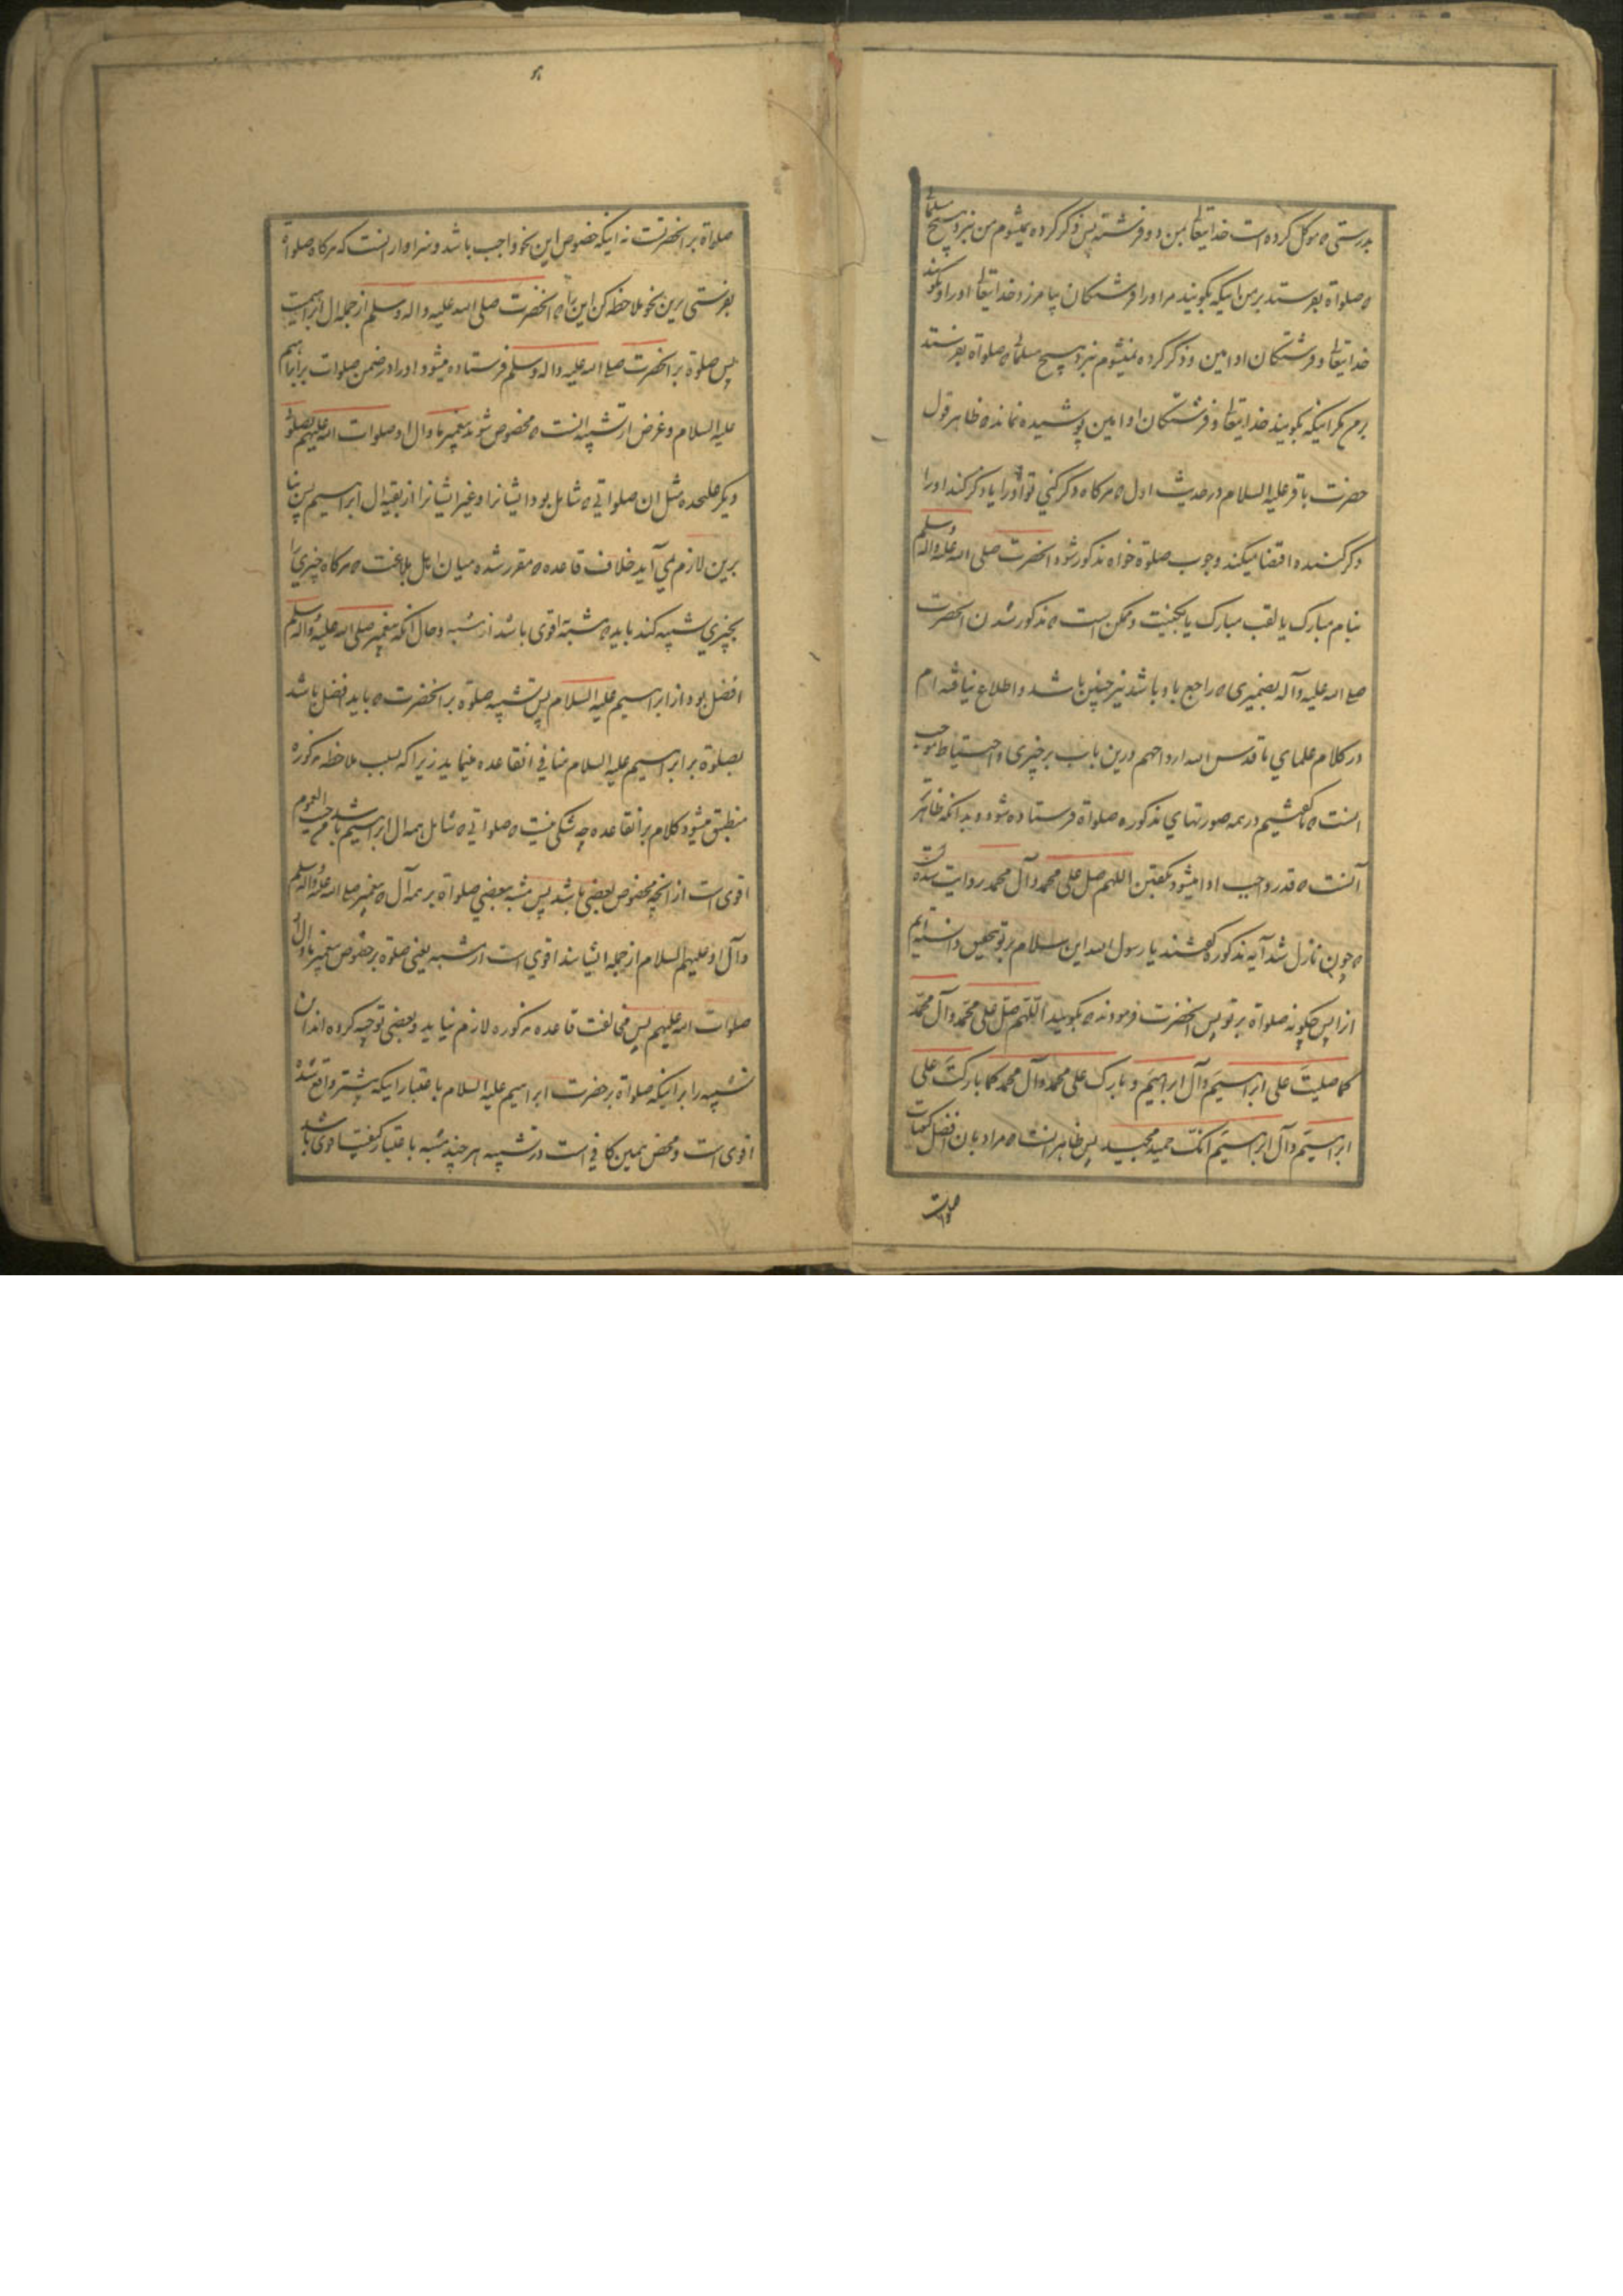 بدرستی که موکل کرده است خدایتعالی بمن دو فرشته پس ذکر کرده نمیشوم من نزد هیچ مسلمانی
که صلواة بفرستد بر من اینکه بگویند مر او را فرشتگان بیامرزد خدایتعالی او را و بگویند
خدایتعالی و فرشتگان او امین و ذکر کرده نمیشوم نزد هیچ مسلمانی که صلواة بفرستد
بر من مگر اینکه بگویند خدایتعالی و فرشتگان او امین پوشیده نماند که ظاهر قول
حضرت باقر علیه السلام در حدیث اول که هر کاه ذکر کنی تو او را یا ذکر کند او را
ذکر کننده اقتضا میکند وجوب صلوة خواه مذکور شود انحضرت صلی الله علیه واله وسلم
بنام مبارک یا لقب مبارک یا بکنیت و ممکن است که مذکور شدن انحضرت
صلی الله علیه وآله بضمیری که راجع باو باشد نیز چنین باشد و اطلاع نیافته ام
در کلام علمای ما قدس الله ارواحهم درین باب بر چیزی و احتیاط موجب
انست که ما گفتیم در همه صورتهای مذکوره صلواة فرستاده شود و بدانکه ظاهر
آنست که قدر واجب ادا میشود بگفتن اللهم صل علی محمد وآل محمد روایت شده است
که چون نازل شد آیه مذکوره گفتند یا رسول الله این سلام بر تو بتحقیق دانسته ایم
ازا پس چگونه صلواة بر تو پس انحضرت فرمودند که بگویید اللّهم صل علی محمد وآل محمد
کما صلیت علی ابراهیم وآل ابراهیم وبارک علی محمد وآل محمد کما بارکت علی
ابراهیم وآل ابراهیم انک حمید مجید پس ظاهر انست که مراد بان افضل کیفیات
صلوات
صلواة بر انحضرتست نه اینکه خصوص این نحو واجب باشد و سزاوار انست که هر کاه صلواة
بفرستی برین نحو ملاحظه کن این را که انحضرت صلی الله علیه واله وسلم از جمله ال ابراهیمست
پس صلوة بر انحضرت صلی الله علیه واله وسلم فرستاده میشود او را در ضمن صلوات بر ابراهیم
علیه السلام و غرض از تشبیه انست که مخصوص شوند پیغمبر ما و ال او صلوات الله علیهم بصلوة
دیگر علیحده مثل ان صلواتی که شامل بود ایشانرا و غیر ایشانرا از بقیه ال ابراهیم پس بنا
برین لازم نمی آید خلاف قاعده که مقرر شده میان اهل بلاغت که هر کاه چیزی را
بچیزی تشبیه کند باید که مشبه به اقوی باشد از مشبه و حال آنکه پیغمبر صلی الله علیه واله وسلم
افضل بود از ابراهیم علیه السلام پس تشبیه صلوة بر انحضرت که باید افضل باشد
بصلوة بر ابراهیم علیه السلام منافی انقاعده مینماید زیرا که بسبب ملاحظه مذکوره
منطبق میشود کلام بر انقاعده چه شکی نیست که صلواتی که شامل همه ال ابراهیم باشد من حیث العموم
اقوی است از انچه مخصوص بعضی باشد پس مشبه به یعنی صلواة بر همه آل که پیغمبر صلی الله علیه واله وسلم
وآل او علیهم السلام از جمله ایشانند اقوی است از مشبه یعنی صلوة بر خصوص پیغمبر ما و ال او
صلوات الله علیهم پس مخالفت قاعده مذکوره لازم نیاید و بعضی توجیه کرده اند ان
تشبیه را بر اینکه صلواة بر حضرت ابراهیم علیه السلام باعتبار اینکه پیشتر واقع شده
اقوی است و محض همین کافی است در تشبیه هر چند مشبه باعتبار کیفیت اقوی باشد